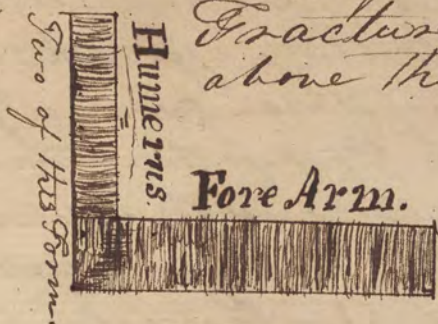 Fractur
above Th
Humerus.
Fore Arm.
Two of this Form